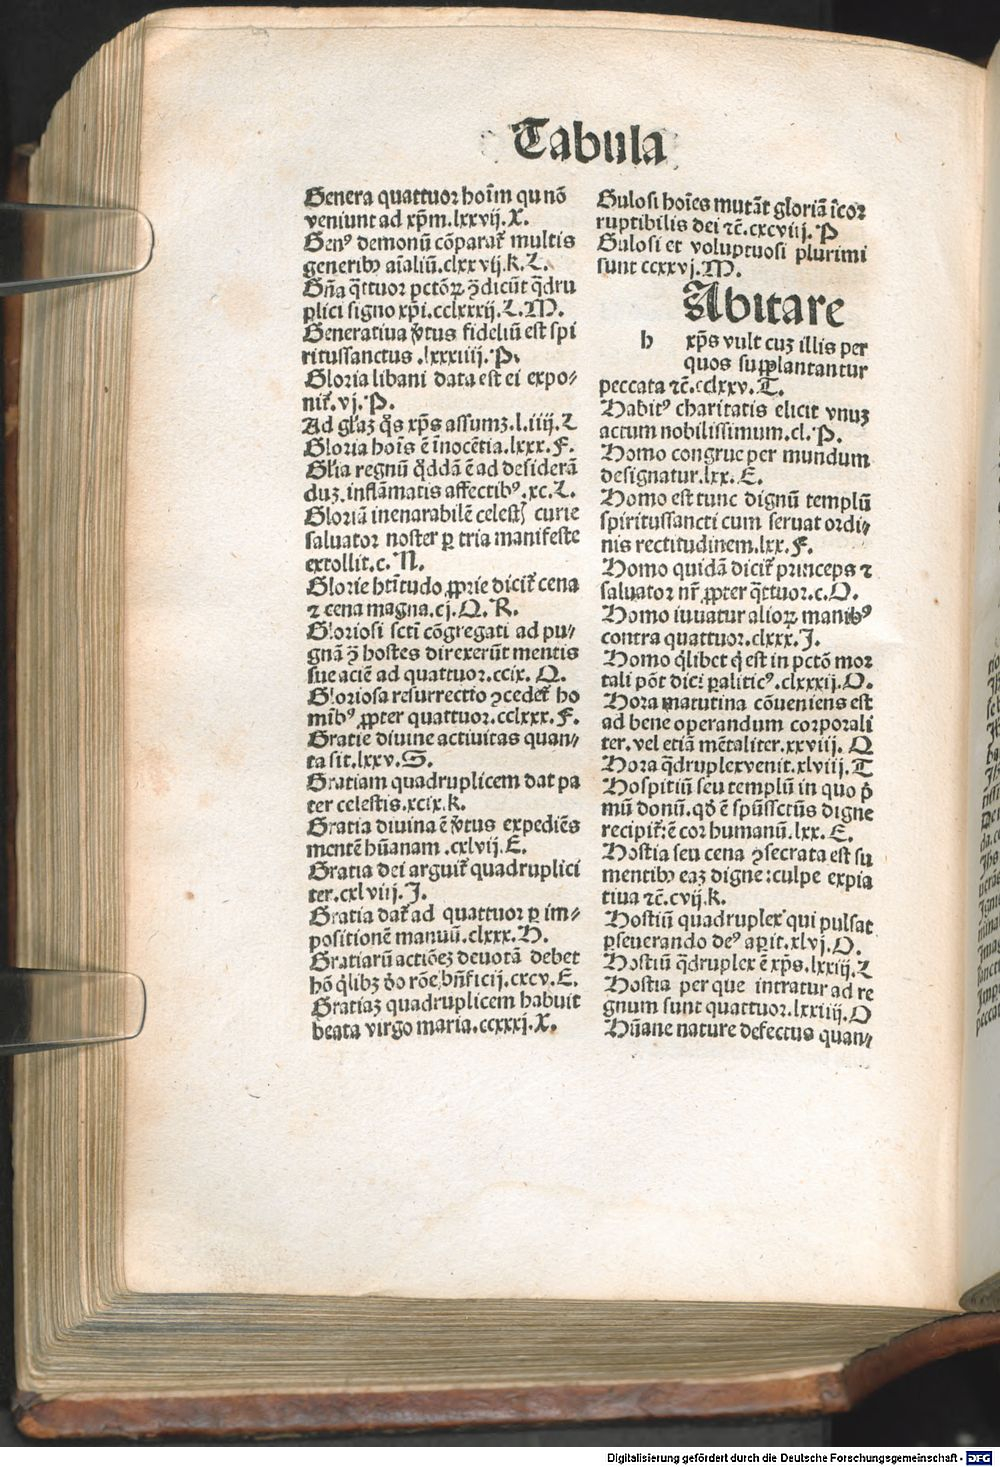 Tabula
Genera quattuor hoīm qu nō
veniunt ad xp̄m.lxxvij.X.
Genꝰ demonū cōparat᷑ multis
generibꝫ aīaliū.clxxvij.K.L.
Gn̄a q̄ttuor pctōꝝ ꝯdicūt q̄dru
plici signo xp̄i.cclxxxij.L.M.
Generatiua v̄tus fideliū est spi
ritussanctus .lxxxiiij.P.
Gloria libani data est ei expo⸗
nit᷑.vj.P.
Ad gl̄iaꝫ q̄s xp̄s assumꝫ.l.iiij.L
Gloria hoīs ē īnocētia.lxxx.F.
Gl̄ia regnū q̄ddā ē ad desiderā
duꝫ.inflāmatis affectibꝰ.xc.L.
Gloriā inenarabilē celestꝭ curie
saluator noster ꝑ tria manifeste
extollit.c.N.
Glorie btī̄tudo ꝓprie dicit᷑ cena
⁊ cena magna.cj.Q.R.
Gloriosi sctī cōgregati ad pu⸗
gnā ꝯ hostes direxerūt mentis
sue aciē ad quattuor.ccix.Q.
Gloriosa resurrectio ꝯcedet᷑ ho
mībꝰ ꝓpter quattuor.cclxxx.F.
Gratie diuine actiuitas quan⸗
ta sit.lxxv.S.
Gratiam quadruplicem dat pa
ter celestis.xcix.K.
Gratia diuina ē v̄tus expediēs
mentē hūanam .cxlvij.E.
Gratia dei arguit᷑ quadruplici
ter.cxlviij.J.
Gratia dat᷑ ad quattuor ꝑ im⸗
positionē manuū.clxxx.H.
Gratiarū actiōeꝫ deuotā debet
hō q̄libꝫ d̄o rōe bn̄ficij.cxcv.E.
Gratiaꝫ quadruplicem habuit
beata virgo maria.ccxxxj.X.
Gulosi hoīes mutāt gloriā īcor
ruptibilis dei ⁊c̄.cxcviij.P
Gulosi et voluptuosi plurimi
sunt ccxxvj.M.
Abitare
h xp̄s vult cuꝫ illis per
quos supplantantur
peccata ⁊c̄.cclxxv.T.
Habitꝰ charitatis elicit vnuꝫ
actum nobilissimum.cl.P.
Homo congrue per mundum
designatur.lxx.E.
Homo est tunc dignū templū
spiritussancti cum seruat ordi⸗
nis rectitudinem.lxx.F.
Homo quidā dicit᷑ princeps ⁊
saluator nr̄ ꝓpter q̄ttuor.c.O.
Homo iuuatur alioꝝ manibꝰ
contra quattuor.clxxx.J.
Homo q̄libet q̄ est in pctō mor
tali pōt dici ꝑaliticꝰ.clxxxij.O.
Hora matutina cōueniens est
ad bene operandum corporali
ter.vel etiā mētaliter.xxviij. Q
Hora q̄druplex venit.xlviij.T
Hospitiū seu templū in quo p̄
mū donū.qd̄ ē spūssctūs digne
recipit᷑:ē cor humanū.lxx.E.
Hostia seu cena ꝯsecrata est su
mentibꝫ eaꝫ digne:culpe expia
tiua ⁊c̄.cvij.K.
Hostiū quadruplex qui pulsat
ꝑseuerando deꝰ aꝑit.xlvj.O.
Hostiū q̄druplex ē xp̄s.lxxiij.L
Hostia per que intratur ad re
gnum sunt quattuor.lxxiiij.O
Hūane nature defectus quan⸗
Digitalisierung gefördert durch die Deutsche Forschungsgemeinschaft - DFG